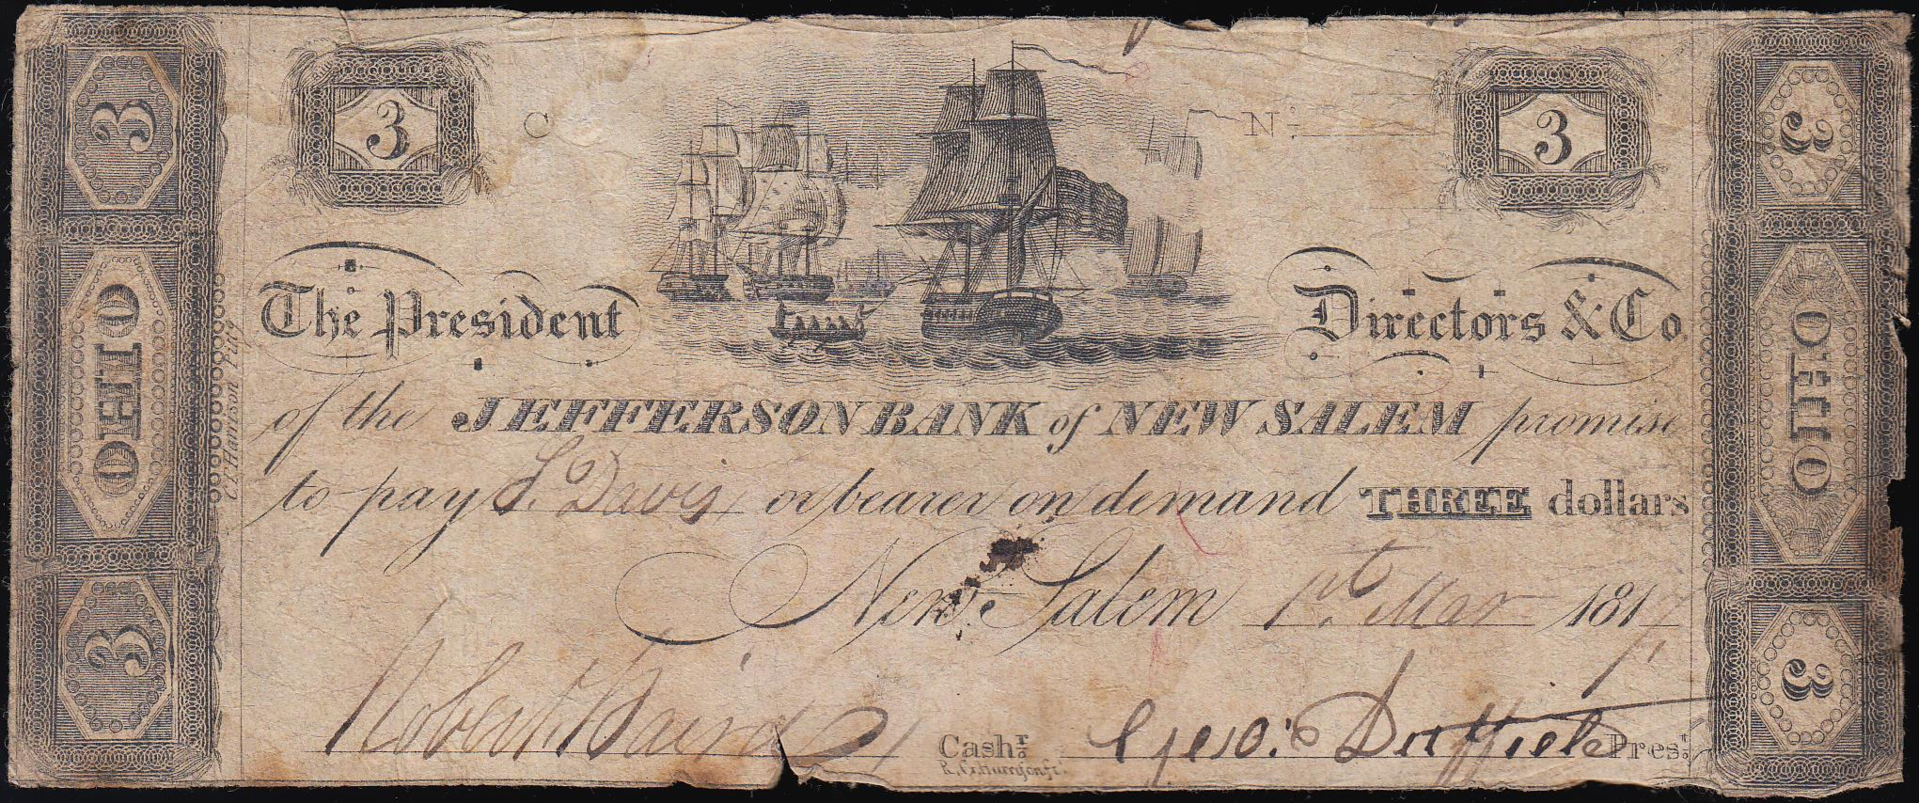 3 3
3 C N: 3
OHIO OHIO
The President Directors & Co.
of the JEFFERSON BANK of NEW SALEM promise
to pay L. Davis or bearer on demand THREE dollars
New Salem 1st. Mar 1817
Robert Baird Cashr. Geo: Duffield Prest.
3 3
C. P. Harrison